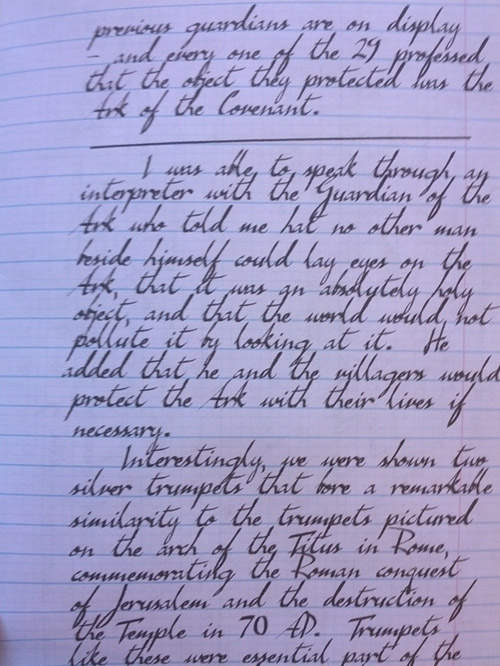 previous guardians are on display
- and every one of the 29 professed
that the object they protected was the
Ark of the Covenant.
I was able to speak through an
interpreter with the Guardian of the
Ark who told me hat no other man
beside himself could lay eyes on the
Ark, that it was an absolutely holy
object, and that the world would not
pollute it by looking at it. He
added that he and the villagers would
protect the Ark with their lives if
necessary.
Interestingly, we were shown two
silver trumpets that bore a remarkable
similarity to the trumpets pictured
on the arch of the Titus in Rome,
commemorating the Roman conquest
of Jerusalem and the destruction of
the Temple in 70 AD. Trumpets
like these were essential part of the